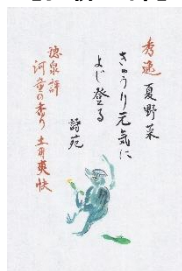 秀逸 夏野菜
きゅうり元気に
よじ登る
詩苑
聴泉評
河童の香り 土用爽快